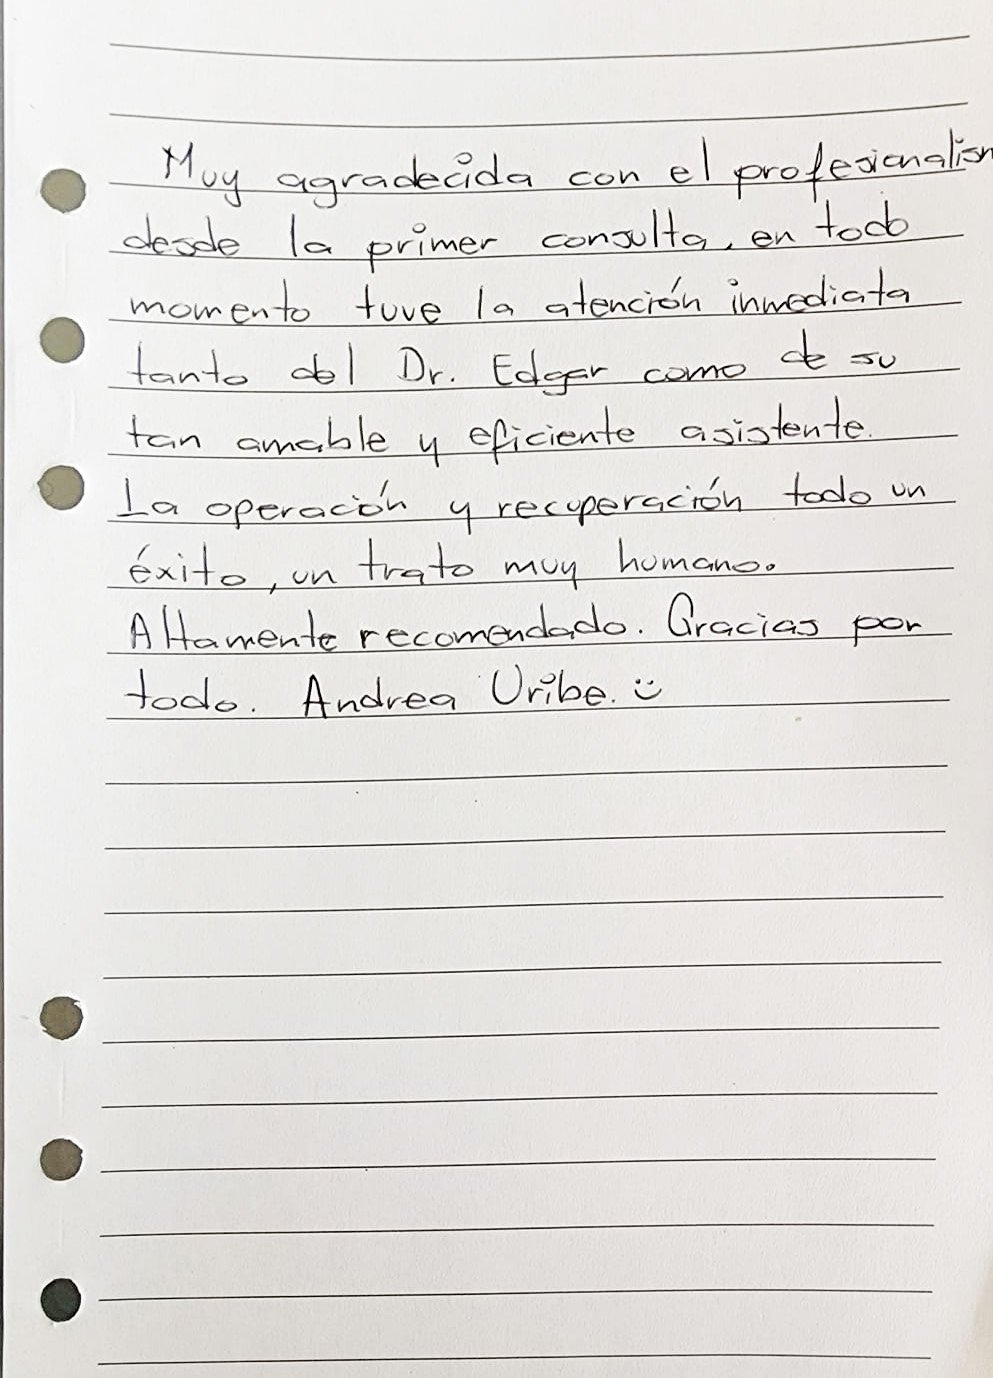 Muy agradecida con el profesionalism
desde la primer consulta, en todo
momento tuve la atención inmediata
tanto del Dr. Edgar como de su
tan amable y eficiente asistente.
La operación y recuperación todo un
éxito, un trato muy humano.
Altamente recomendado. Gracias por
todo. Andrea Uribe. Ü